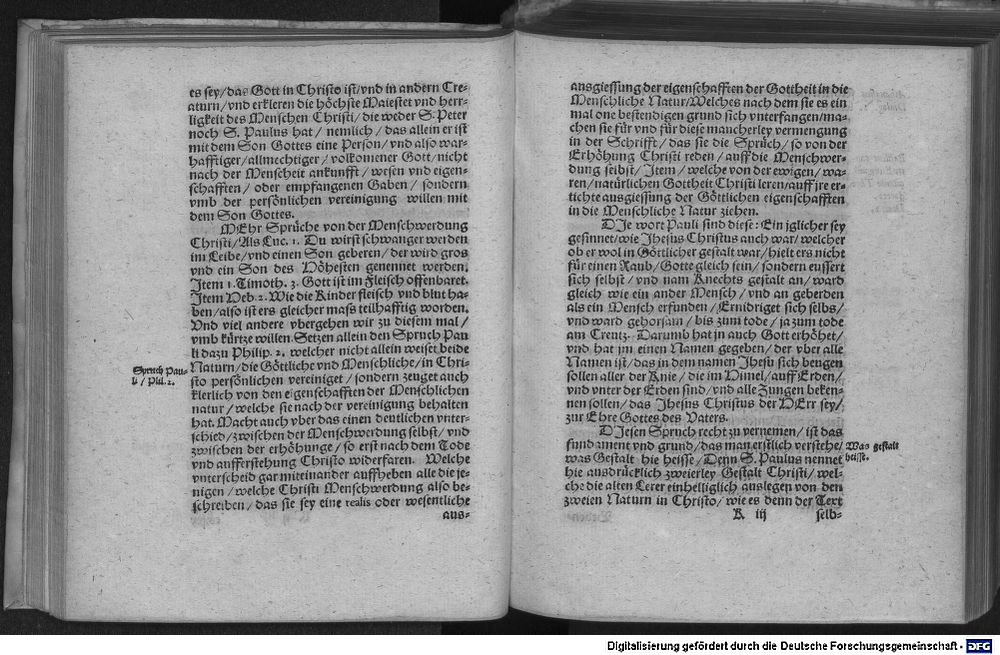 es sey/das Gott in Christo ist/vnd in andern Cre-
aturn/vnd erkleren die höchste Maiestet vnd herr-
ligkeit des Menschen Christi/die weder S. Peter
noch S. Paulus hat/nemlich/das allein er ist
mit dem Son Gottes eine Person/vnd also war-
hafftiger/allmechtiger/volkomener Gott/nicht
nach der Menscheit ankunfft/wesen vnd eigen-
schafften/oder empfangenen Gaben/sondern
vmb der persönlichen vereinigung willen mit
dem Son Gottes.
MEhr Sprüche von der Menschwerdung
Christi/Als Luc. 1. Du wirst schwanger werden
im Leibe/vnd einen Son geberen/der wird gros
vnd ein Son des Höhesten genennet werden.
Item 1. Timoth. 3. Gott ist im Fleisch offenbaret.
Item Heb. 2. Wie die Kinder fleisch vnd blut ha-
ben/also ist ers gleicher mass teilhafftig worden.
Vnd viel andere vbergehen wir zu diesem mal/
vmb kürtze willen. Setzen allein den Spruch Pau
li dazu Philip. 2. welcher nicht allein weiset beide
Naturn/die Göttliche vnd Menschliche/in Chri-
sto persönlichen vereiniget/sondern zeuget auch
klerlich von den eigenschafften der Menschlichen
natur/welche sie nach der vereinigung behalten
hat. Macht auch vber das einen deutlichen vnter-
schied/zwischen der Menschwerdung selbst/vnd
zwischen der erhöhunge/so erst nach dem Tode
vnd aufferstehung Christo widerfaren. Welche
vnterscheid gar miteinander auffheben alle die je-
nigen/welche Christi Menschwerdung also be-
schreiben/das sie sey eine realis oder wesentliche
aus-
Spruch Pau-
li/Phil. 2.
ausgiessung der eigenschafften der Gottheit in die
Menschliche Natur/Welches nach dem sie es ein
mal one bestendigen grund sich vnterfangen/ma-
chen sie für vnd für diese mancherley vermengung
in der Schrifft/das sie die Sprüch/so von der
Erhöhung Christi reden/auff die Menschwer-
dung selbst/Item/welche von der ewigen/wa-
ren/natürlichen Gottheit Christi leren/auff jre er-
tichte ausgiessung der Göttlichen eigenschafften
in die Menschliche Natur ziehen.
DJe wort Pauli sind diese: Ein jglicher sey
gesinnet/wie Jhesus Christus auch war/welcher
ob er wol in Göttlicher gestalt war/hielt ers nicht
für einen Raub/Gotte gleich sein/sondern eussert
sich selbst/vnd nam Knechts gestalt an/ward
gleich wie ein ander Mensch/vnd an geberden
als ein Mensch erfunden/Ernidriget sich selbs/
vnd ward gehorsam/bis zum tode/ja zum tode
am Creutz. Darumb hat jn auch Gott erhöhet/
vnd hat jm einen Namen gegeben/der vber alle
Namen ist/das in dem namen Jhesu sich beugen
sollen aller der Knie/die im Himel/auff Erden/
vnd vnter der Erden sind/vnd alle Zungen beken-
nen sollen/das Jhesus Christus der HErr sey/
zur Ehre Gottes des Vaters.
DJesen Spruch recht zu vernemen/ist das
fundament vnd grund/das man erstlich verstehe/
was Gestalt hie heisse/Denn S. Paulus nennet
hie ausdrücklich zweierley Gestalt Christi/wel-
che die alten Lerer einhelliglich auslegen von den
zweien Naturn in Christo/wie es denn der Text
K iij selb-
Was gestalt
heisse.
Digitalisierung gefördert durch die Deutsche Forschungsgemeinschaft - DFG